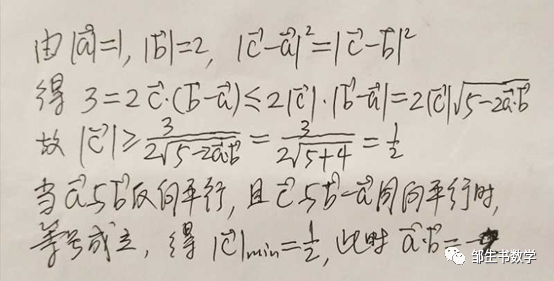 由|a⃗|=1, |b⃗|=2, |c⃗-a⃗|²=|c⃗-b⃗|²
得 3=2c⃗·(b⃗-a⃗)≤2|c⃗|·|b⃗-a⃗|=2|c⃗|√(5-2a⃗·b⃗)
故 |c⃗|≥3/(2√(5-2a⃗·b⃗))=3/(2√(5+4))=1/2
当a⃗与b⃗反向平行,且c⃗与b⃗-a⃗同向平行时,
等号成立,得|c⃗|min=1/2,此时 a⃗·b⃗=-
邹生书数学